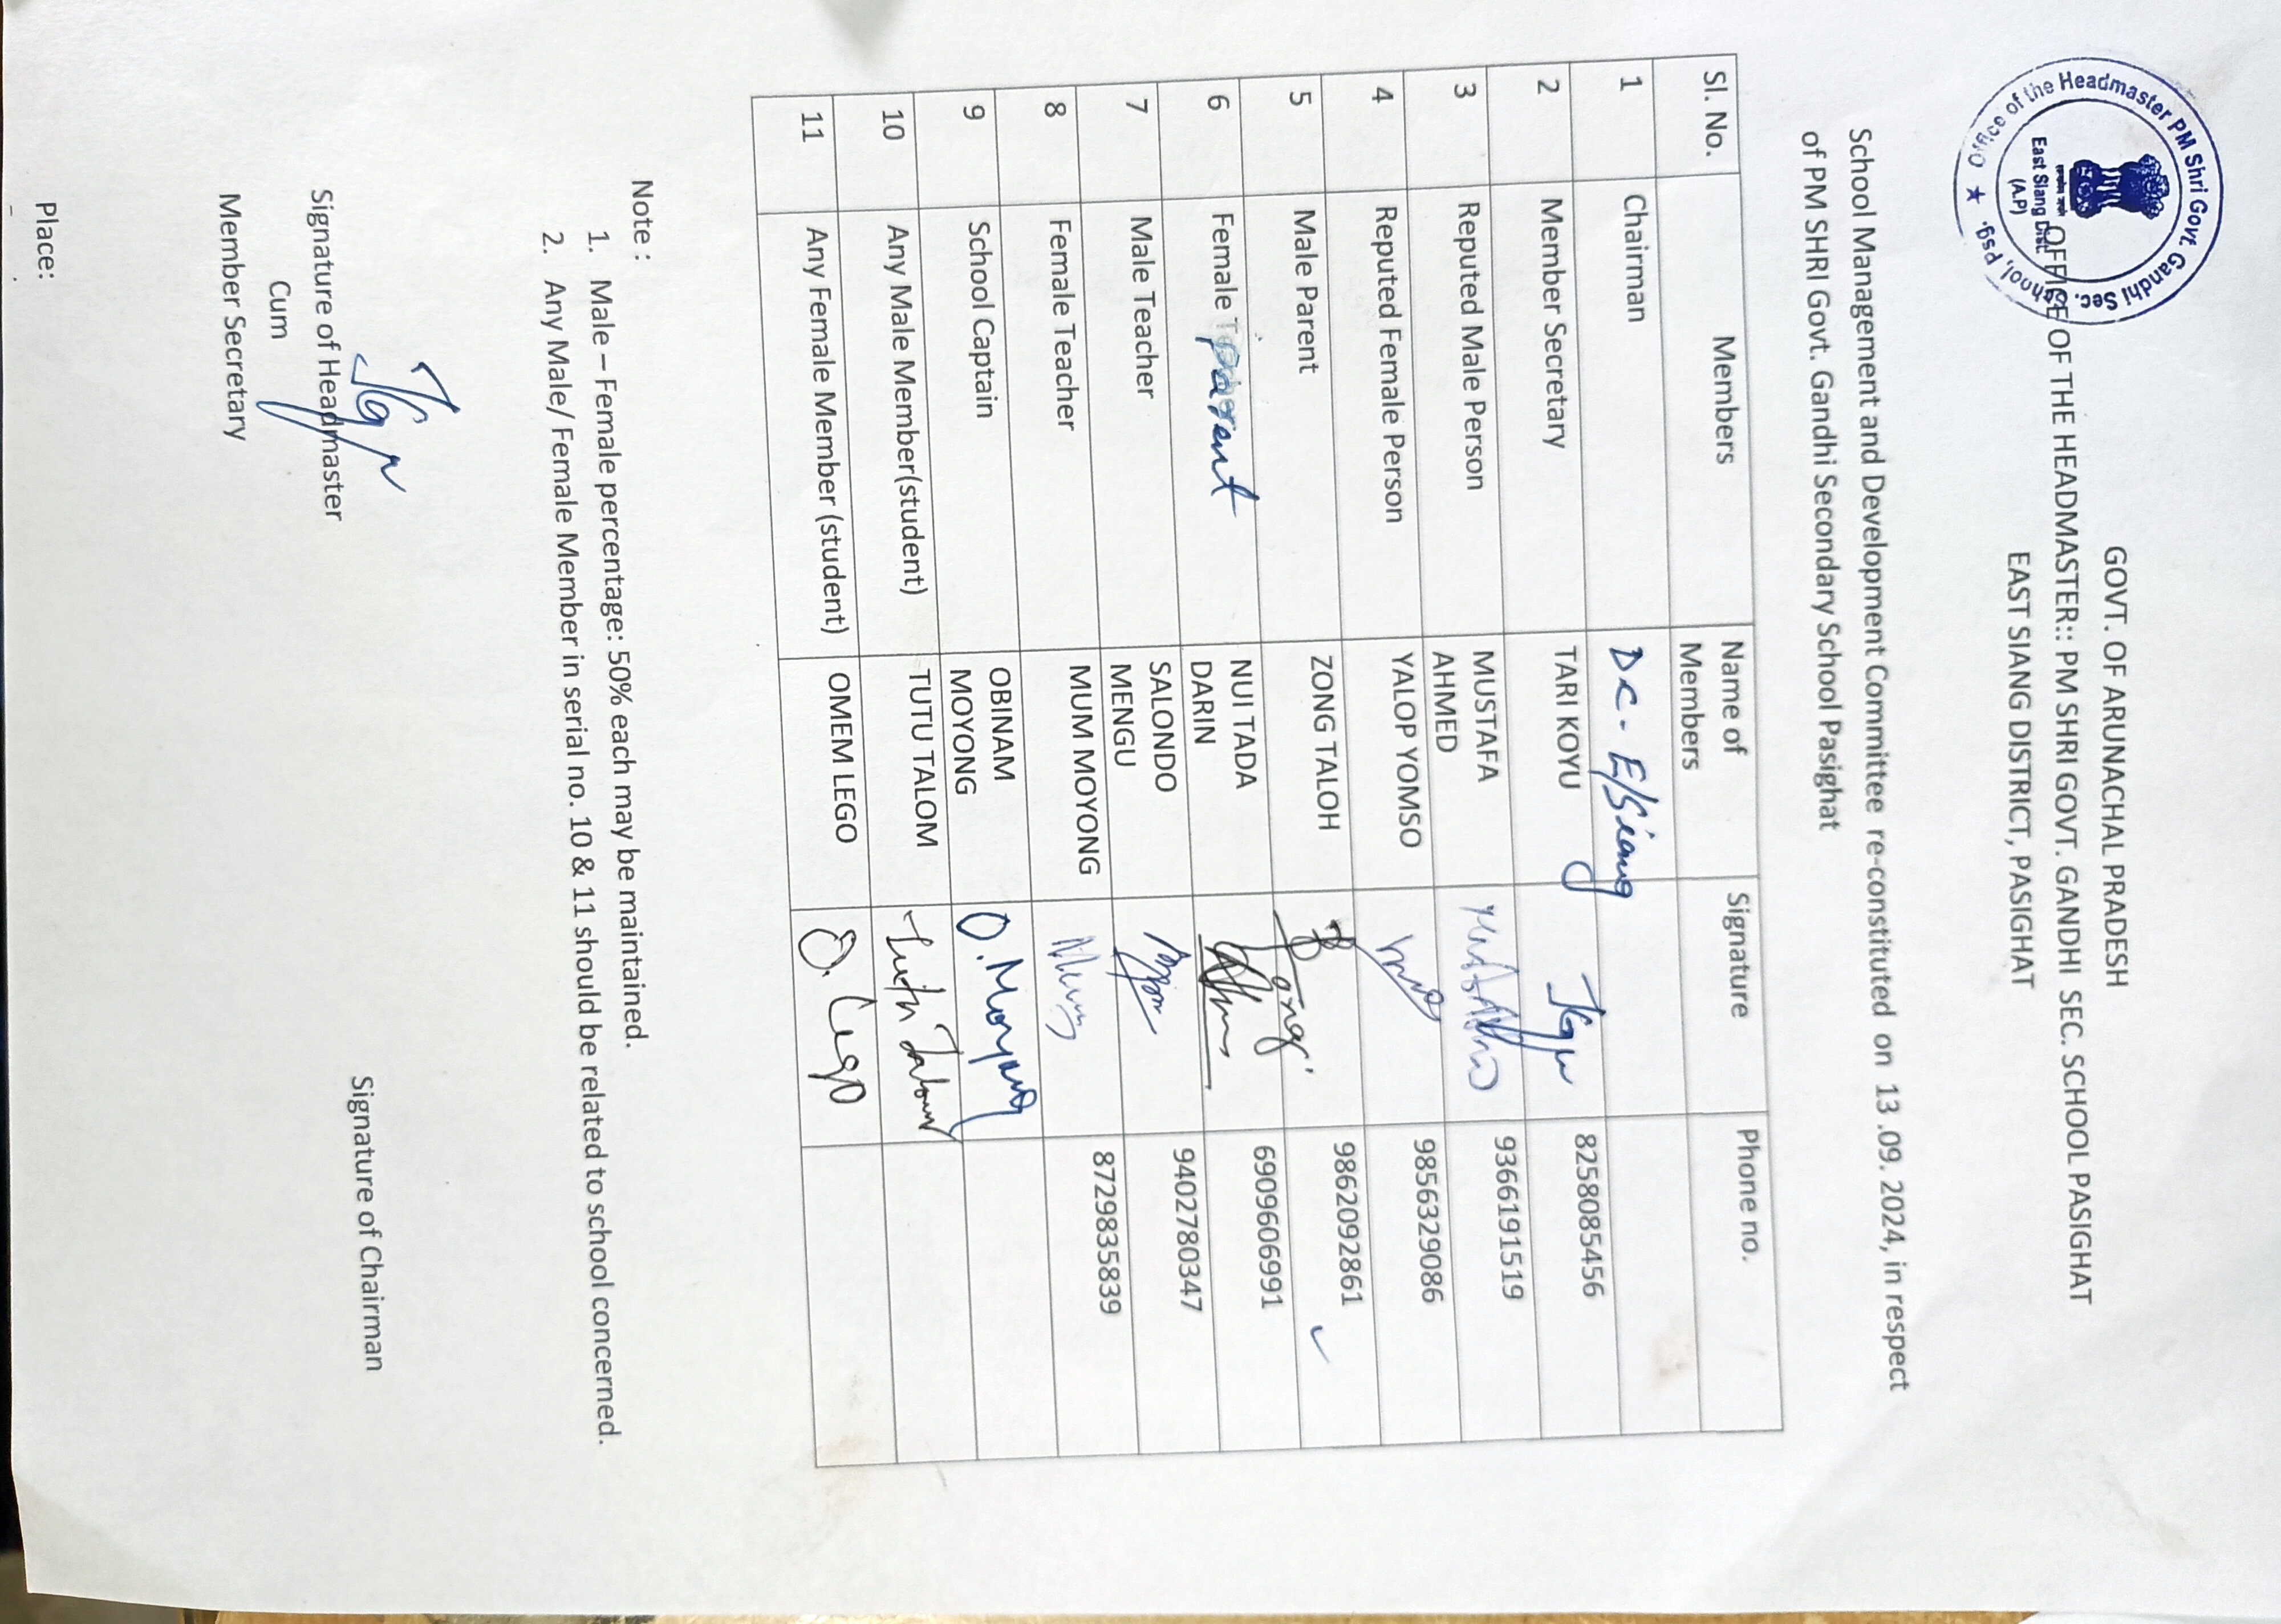 Office of the Headmaster PM Shri Govt. Gandhi Sec. School, Psg.
East Siang Dist.
(A.P)
GOVT. OF ARUNACHAL PRADESH
OFFICE OF THE HEADMASTER:: PM SHRI GOVT. GANDHI SEC. SCHOOL PASIGHAT
EAST SIANG DISTRICT, PASIGHAT
School Management and Development Committee re-constituted on 13 .09. 2024, in respect
of PM SHRI Govt. Gandhi Secondary School Pasighat
Sl. No. Members Name of Members Signature Phone no.
1 Chairman DC- E/Siang
2 Member Secretary TARI KOYU 8258085456
3 Reputed Male Person MUSTAFA AHMED 9366191519
4 Reputed Female Person YALOP YOMSO 9856329086
5 Male Parent ZONG TALOH 9862092861
6 Female Parent NUI TADA DARIN 6909606991
7 Male Teacher SALONDO MENGU 9402780347
8 Female Teacher MUM MOYONG 8729835839
9 School Captain OBINAM MOYONG O. Moyong
10 Any Male Member(student) TUTU TALOM Tutu Talom
11 Any Female Member (student) OMEM LEGO O. Lego
Note :
1. Male – Female percentage: 50% each may be maintained.
2. Any Male/ Female Member in serial no. 10 & 11 should be related to school concerned.
Signature of Headmaster
Cum
Member Secretary
Signature of Chairman
Place: